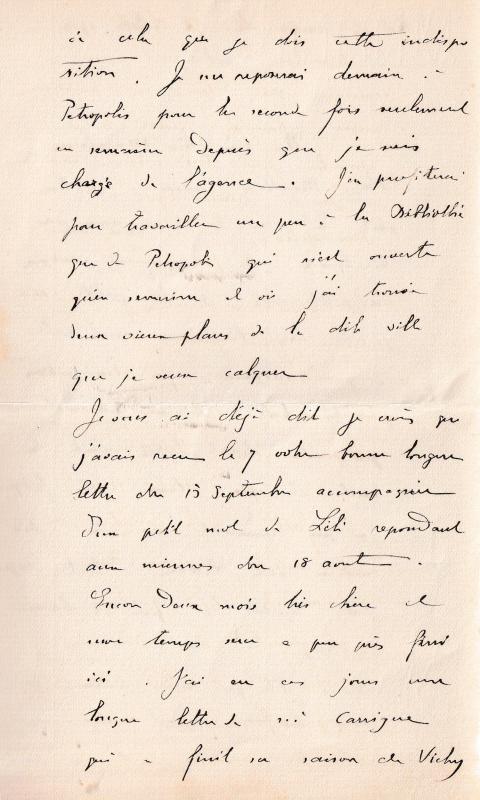 à cela que je dois cette indispo
sition. Je me reposerai demain à
Petropolis pour la seconde fois seulement
en semaine depuis que je suis
chargé de l'agence. J'en profiterai
pour travailler un peu à la Bibliothè
que de Petropolis qui n'est ouverte
qu'en semaine et où j'ai trouvé
deux vieux plans de la dite ville
que je veux calquer
Je vous ai déjà dit je crois que
j'avais reçu le 7 votre bonne longue
lettre du 15 Septembre accompagnée
d'un petit mot de Lili repondant
aux miennes du 18 aout.
Encore deux mois très chère et
mon temps sera a peu près fini
ici. J'ai eu ces jours une
longue lettre de Carrique
qui a finit sa saison de Vichy